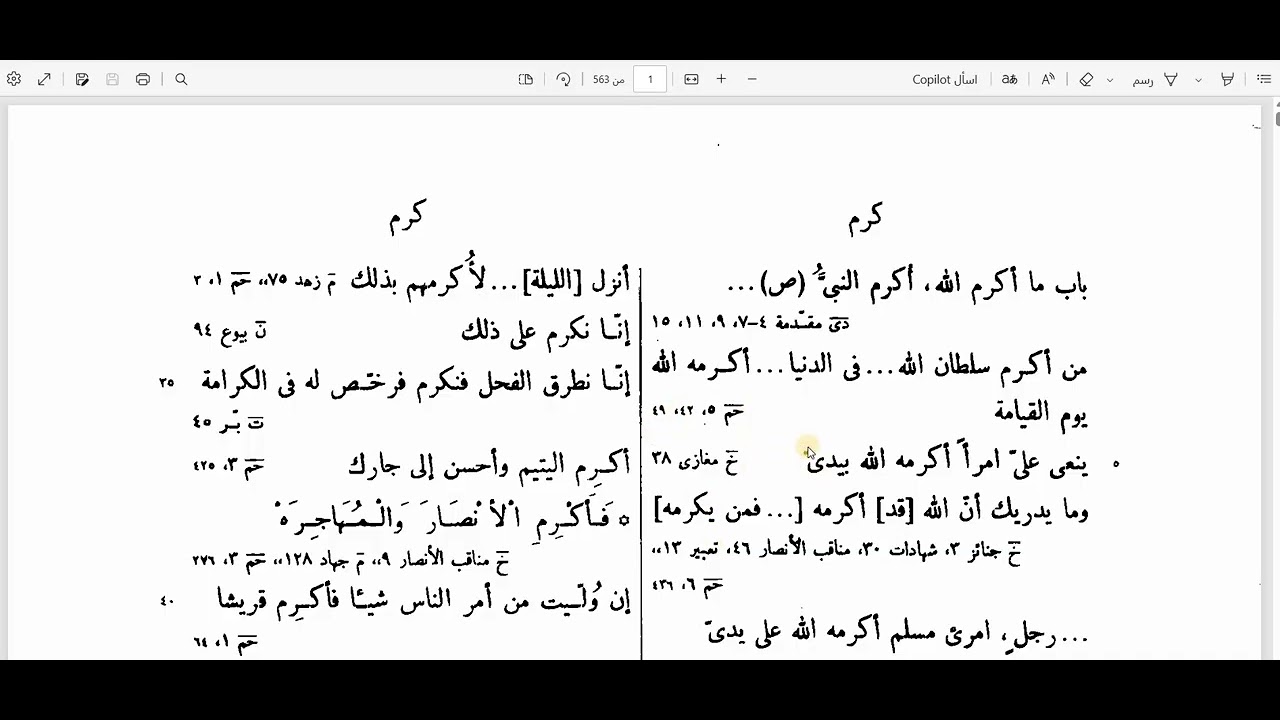 اسأل Copilot
رسم
1
من 563
كرم
باب ما أكرم الله، أكرم النبىُّ (ص) ...
دى مقدّمة ٤-٧، ٩، ١١، ١٥
من أكرم سلطان الله... فى الدنيا... أكرمه الله
يوم القيامة
حم ٥، ٤٢، ٤٩
ينعى علىّ امرأً أكرمه الله بيدى
خ مغازى ٣٨
٥
وما يدريك أنّ الله [قد] أكرمه [... فمن يكرمه]
خ جنائز ٣، شهادات ٣٠، مناقب الأنصار ٤٦، تعبير ١٣،،
حم ٦، ٤٣٦
... رجلٍ، امرئ مسلم أكرمه الله على يدىّ
كرم
أنزل [الليلة]... لأُكرمهم بذلك
م زهد ٧٥،، حم ١، ٣
إنّا نكرم على ذلك
ن بيوع ٩٤
إنّا نطرق الفحل فنكرم فرخّص له فى الكرامة
٣٥
ت بر ٤٥
أكرِم اليتيم وأحسن إلى جارك
حم ٣، ٤٢٥
* فَأَكْرِمِ الْأَنْصَارَ وَالْمُهَاجِرَهْ
خ مناقب الأنصار ٩،، م جهاد ١٢٨،، حم ٣، ٢٧٦
إن وُلّيت من أمر الناس شيئا فأكرِم قريشا
٤٠
حم ١، ٦٤